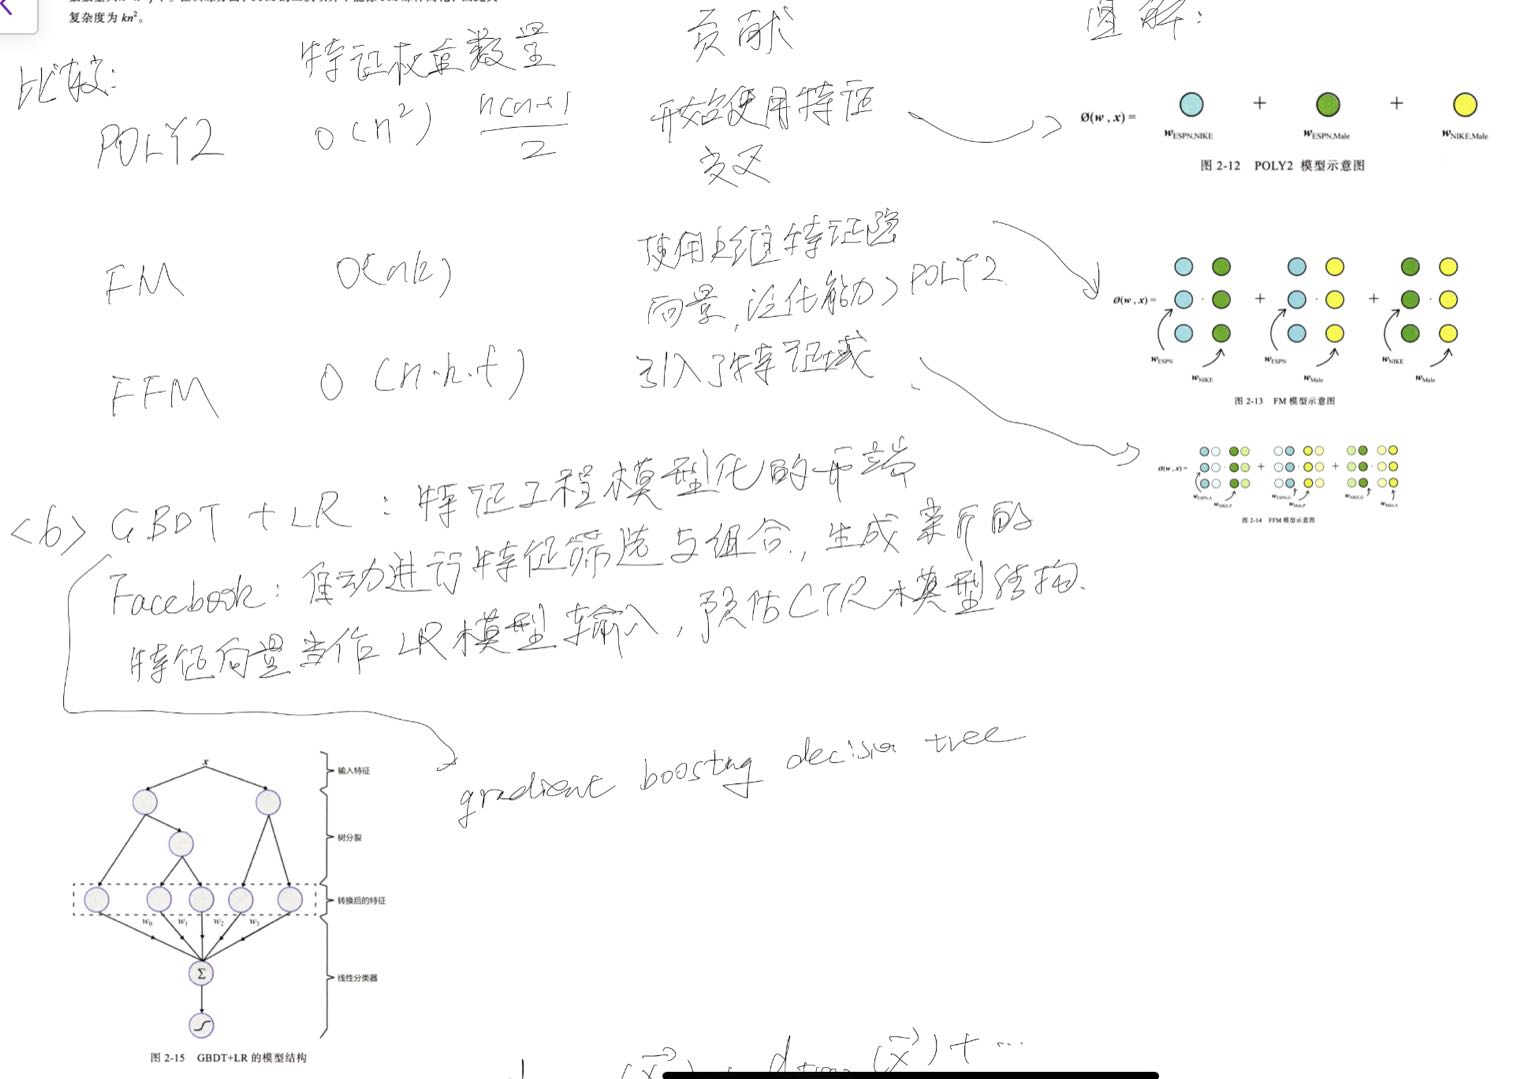 复杂度为 kn²。
比较：
特征权重数量
贡献
图解：
POLY2 O(n²) n(n+1)/2 开始使用特征
交叉
Ø(w , x) =
+ +
wESPN,NIKE wESPN,Male wNIKE,Male
图 2-12 POLY2 模型示意图
FM O(nk) 使用 维特征隐
向量，泛化能力>POLY2
Ø(w , x) =
+ +
wESPN wESPN wNIKE
wNIKE wMale wMale
图 2-13 FM 模型示意图
FFM O(n·k·f) 引入了特征域
Ø(w , x) =
+ +
wESPN,A wNIKE,P wESPN,G wMale,P wNIKE,G wMale,A
图 2-14 FFM 模型示意图
<6> GBDT + LR : 特征工程模型化的开端
Facebook: 自动进行特征筛选与组合，生成 的
特征向量当作 LR模型输入，预估CTR模型结构.
gradient boosting decision tree
x
输入特征
树分裂
转换后的特征
w0 w1 w2 w3
Σ
线性分类器
图 2-15 GBDT+LR 的模型结构